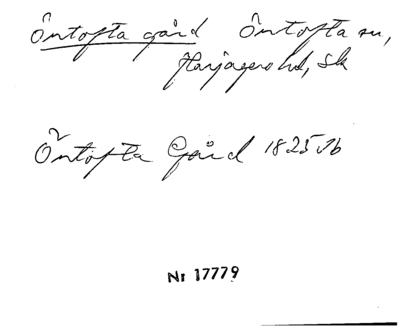 Öntofta gård Öntofta sn,
Harjagers hd, Sk
Öntofta Gård 1825 Jb
Nr 17779